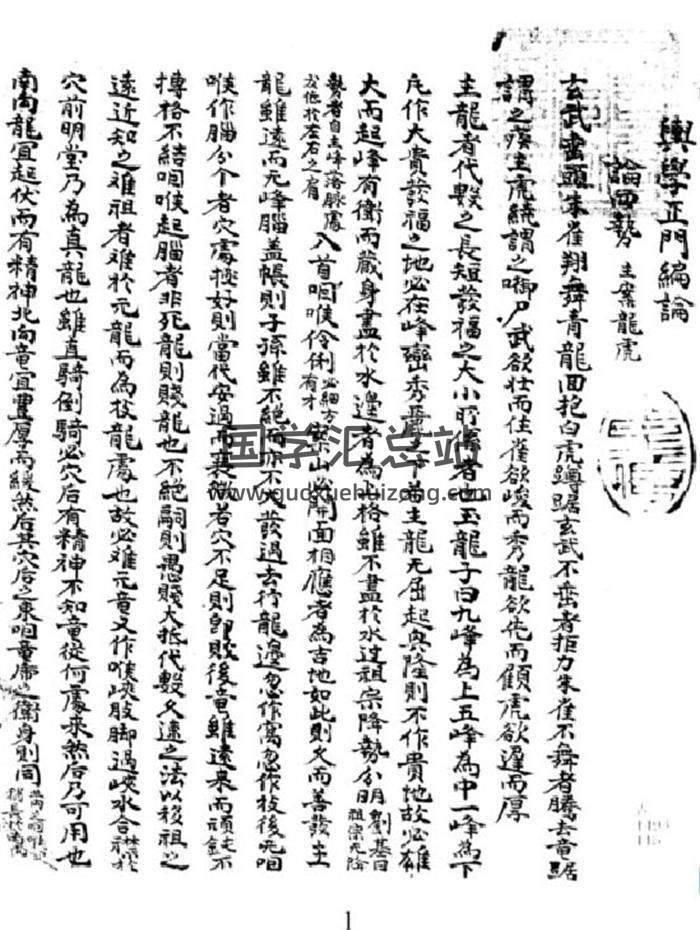 輿學正門編論
論四勢 主案龍虎
玄武垂頭朱雀翔舞青龍面抱白虎蹲踞玄武不垂者拒尸朱雀不舞者騰去竜踞
謂之疾主虎繞謂之啣尸武欲壯而住雀欲峻而秀龍欲先而顧虎欲遲而厚
主龍者代數之長短發福之大小所係者也玉龍子曰九峰為上五峰為中一峰為下
凡作大貴發福之地必在峰巒秀麗之下若主龍无屈起興隆則不作貴地故必雄
大而起峰有衛而藏身盡於水邊者為格雖不盡於水过祖宗降勢分明 劉基曰祖宗元降
勢者自主峰落脉處 於左右之肩 入首咽喉伶俐 必細方有才 案山必開面相應者為吉地如此則久而善發主
龍雖遠而无峰腦盖帳則子孫雖不絕而亦不大發過去行龍邊忽作窩忽作枝後无咽
喉作腦分个者穴處極好則當代安過而衰微若穴不足則卽敗後竜雖遠來而頑鈍不
搏格不結咽喉起腦者非死龍則賤龍也不絕嗣則愚賤大抵代數久速之法以移祖之
遠近知之难祖者难於元龍而為枝龍處也故必难元竜又作喉峽肢脚過峽水合襟於
穴前明堂乃為真龍也雖直騎倒騎必穴后有精神不知竜從何處来然后乃可用也
南向龍宜起伏而有精神北向竜宜豐厚而緩然后其穴后之束咽竜虎之衛身則同
国学汇总站
www.guoxuehuizong.com
1